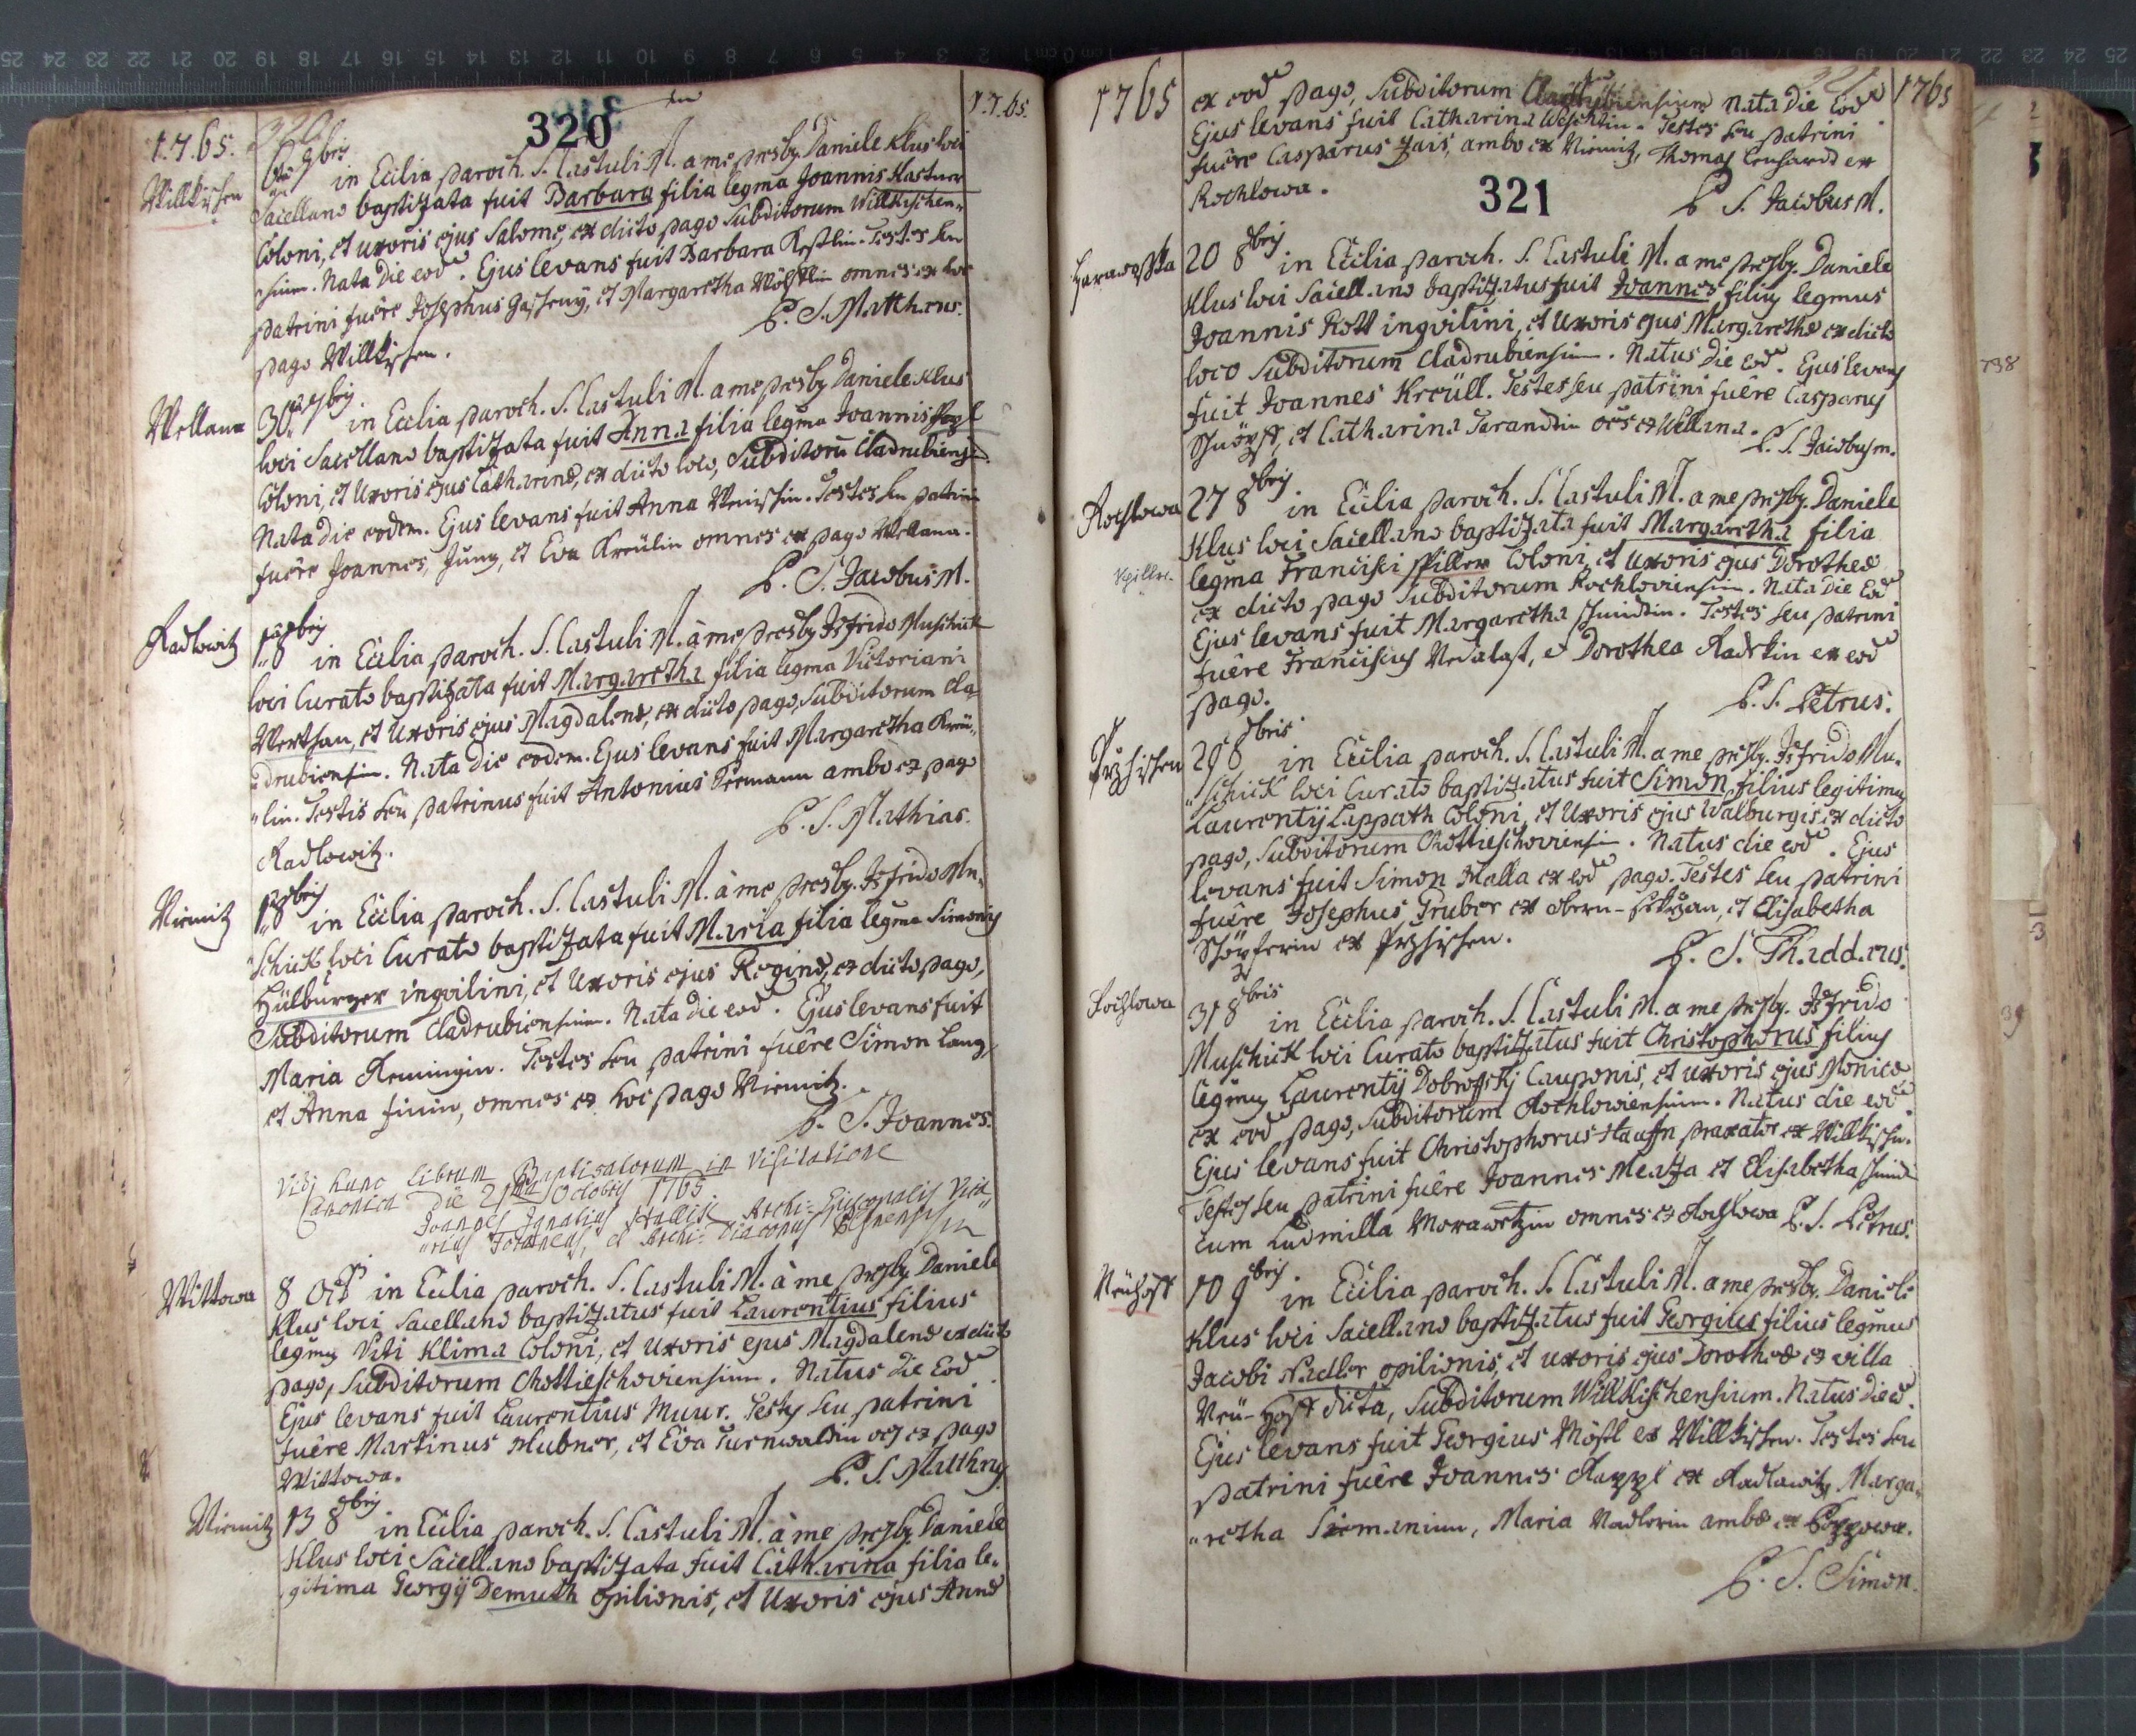 320
1765.
1.7.65.
Willkischen
7bris in Ecclia paroch. S. Castuli M. a me presby. Daniele Klus loci
Sacellano baptizata fuit Barbara filia legma Joannis Kastner
Coloni, et uxoris ejus Salome, ex dicto pago Subditorum Willkischen„
sium. Nata die eod. Ejus levans fuit Barbara . Testes seu
patrini fuêre Josephus , et Margaretha omnes ex hoc
pago Willkischen.
P. S. Matthæus.
Wellana
30 7bris in Ecclia paroch. S. Castuli M. a me presby. Daniele Klus
loci Sacellano baptizata fuit Anna filia legma Joannis
Coloni, et Uxoris ejus Catharinæ, ex dicto loco, Subditorū Cladrubiens.
Nata die eodem. Ejus levans fuit Anna . Testes seu patrini
fuêre Joannes, Jung, et Eva Kreülin omnes ex pago Wellana.
P. S. Jacobus M.
Radlowitz
1 8bris in Ecclia paroch. S. Castuli M. à me presby. Isfrido Muschick
loci Curato baptizata fuit Margaretha filia legma Victoriani
Werthan, et Uxoris ejus Magdalenæ, ex dicto pago, Subditorum Cla„
„drubiensium. Nata die eodem. Ejus levans fuit Margaretha Kreü„
„lin. Testis seu patrinus fuit Antonius ambo ex pago
Radlowitz.
P. S. Mathias.
Niemitz
1 8bris in Ecclia paroch. S. Castuli M. à me presby. Isfrido Mu„
„schick loci Curato baptizata fuit Maria filia legma Simonis
Hülburger inqvilini, et Uxoris ejus Reginæ, ex dicto pago,
Subditorum Cladrubiensium. Nata die eod. Ejus levans fuit
Maria . Testes seu patrini fuêre Simon Lang,
et Anna , omnes ex hoc pago Niemitz.
P. S. Joannes.
Vidi hunc librum Baptisatorum in Visitatione
Canonica die 21 Octobris 1765
Joannes Ignatius Archi-Episcopalis Vica
„rius Foraneus, et Archi-Diaconus Plsnensis
Wittowa
8 Octb in Ecclia paroch. S. Castuli M. à me presby. Daniele
Klus loci Sacellano baptizatus fuit Laurentius filius
legmus Viti Klima Coloni, et uxoris ejus Magdalenæ ex dicto
pago, Subditorum Chottieschoviensium. Natus die Eod
Ejus levans fuit Laurentius Muur. Testes seu patrini
fuêre Martinus Hubner, et Eva Turnwaldin oēs ex pago
Wittowa.
P. S. Matthæus
Niemitz
13 8bris in Ecclia paroch. S. Castuli M. à me presby. Daniele
Klus loci Sacellano baptizata fuit Catharina filia le„
„gitima Georgij Demuth opilionis, et Uxoris ejus Annæ
1765
1765
ex eod pago, Subditorum Cladrubiensium Nata die Eod
Ejus levans fuit Catharina Weschtin. Testes seu patrini
fuêre Casparus Zais, ambo ex Niemitz, Thomas Lenhardt ex
Rochlowa.
P. S. Jacobus M.
321
Harawaska
20 8bris in Ecclia paroch. S. Castuli M. a me presby. Daniele
Klus loci Sacellano baptizatus fuit Joannes filius legmus
Joannis Rott inqvilini, et Uxoris ejus Margarethæ ex dicto
loco Subditorum Cladrubiensium. Natus die eod. Ejus levans
fuit Joannes Kreüll. Testes seu patrini fuêre Casparus
, et Catharina oēs ex Wellana.
P. S. Jacobus M.
Rochlowa
27 8bris in Ecclia paroch. S. Castuli M. a me presby. Daniele
Klus loci Sacellano baptizata fuit Margaretha filia
legma Francisci Spiller Coloni, et uxoris ejus Dorotheæ
ex dicto pago Subditorum Rochloviensium. Nata die Eod
Ejus levans fuit Margaretha Schmidtin. Testes seu patrini
fuêre Franciscus , et Dorothea ex eod
pago.
P. S. Petrus.
Przhischen
29 8bris in Ecclia paroch. S. Castuli M. a me presby. Isfrido Mu„
„schick loci Curato baptizatus fuit Simon filius legitimus
Laurentij Lappath Coloni, et Uxoris ejus Walburgis ex dicto
pago, Subditorum Chottieschoviensi. Natus die eod. Ejus
levans fuit Simon Malla ex eod pago. Testes seu patrini
fuêre Josephus, Gruber ex obern-, et Elisabetha
Schöpferin ex Przhischen.
P. S. Thaddæus.
Rochlowa
31 8bris in Ecclia paroch. S. Castuli M. a me presby. Isfrido
Muschick loci Curato baptizatus fuit Christophorus filius
legmus Laurentij Dobrofskj Cauponis, et uxoris ejus Monicæ
ex eod pago, Subditorum Rochloviensium. Natus die eod
Ejus levans fuit Christophorus praxator ex Willkischen.
Testes seu patrini fuêre Joannes et Elisabetha
cum Ludmilla Morawetzin omnes ex Rochlowa P. S. Petrus.
Neühoff
10 9bris in Ecclia paroch. S. Castuli M. a me presby. Daniele
Klus loci Sacellano baptizatus fuit Georgius filius legmus
Jacobi Nadler opilionis, et uxoris ejus Dorotheæ ex villa
Neü-Hoff dicta, Subditorum Willkischensium. Natus die eod.
Ejus levans fuit Georgius Mößl ex Willkischen. Testes seu
patrini fuêre Joannes ex Radlowitz, Marga„
„retha , Maria Nadlerin ambæ ex .
P. S. Simon.